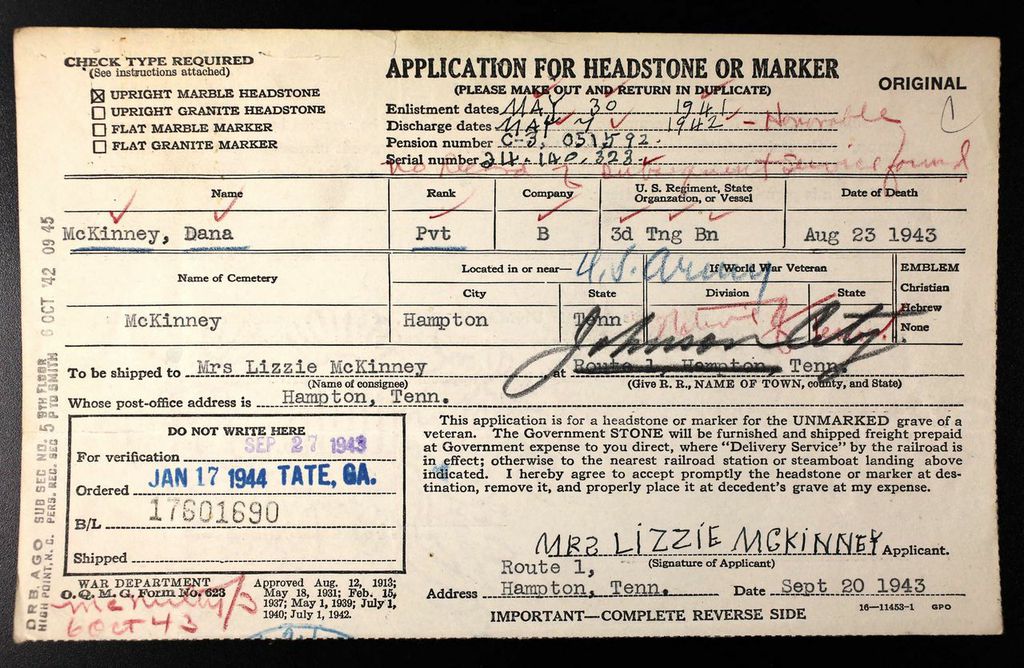 CHECK TYPE REQUIRED
(See instructions attached)
☒ UPRIGHT MARBLE HEADSTONE
☐ UPRIGHT GRANITE HEADSTONE
☐ FLAT MARBLE MARKER
☐ FLAT GRANITE MARKER
APPLICATION FOR HEADSTONE OR MARKER
(PLEASE MAKE OUT AND RETURN IN DUPLICATE)
ORIGINAL
Enlistment dates MAY 30 1941
Discharge dates MAY 7 1942 - Honorable
Pension number C-3, 051592.
Serial number 34-140-328.
No record of subsequent service found
Name Rank Company U. S. Regiment, State Organzation, or Vessel Date of Death
McKinney, Dana Pvt B 3d Tng Bn Aug 23 1943
U.S. Army
Name of Cemetery Located in or near— If World War Veteran EMBLEM
City State Division State Christian
Hebrew
None
McKinney Hampton Tenn
Johnson City
To be shipped to Mrs Lizzie McKinney at Route 1, Hampton, Tenn.
(Name of consignee) (Give R. R., NAME OF TOWN, county, and State)
Whose post-office address is Hampton, Tenn.
DO NOT WRITE HERE
For verification SEP 27 1943
Ordered JAN 17 1944 TATE, GA.
B/L 17601690
Shipped
This application is for a headstone or marker for the UNMARKED grave of a
veteran. The Government STONE will be furnished and shipped freight prepaid
at Government expense to you direct, where "Delivery Service" by the railroad is
in effect; otherwise to the nearest railroad station or steamboat landing above
indicated. I hereby agree to accept promptly the headstone or marker at des-
tination, remove it, and properly place it at decedent's grave at my expense.
MRS LIZZIE MCKINNEY Applicant.
(Signature of Applicant)
Route 1,
Address Hampton, Tenn. Date Sept 20 1943
WAR DEPARTMENT
O. Q. M. G. Form No. 623
Approved Aug. 12, 1913;
May 18, 1931; Feb. 15,
1937; May 1, 1939; July 1,
1940; July 1, 1942.
6 Oct 43
IMPORTANT—COMPLETE REVERSE SIDE
16—11453-1 GPO
DRB. AGO SUB SEC NO. 5 9TH FLOOR 6 OCT '42 09 45
HIGH POINT, N. C. PERS. REC. SEC PTD SMITH